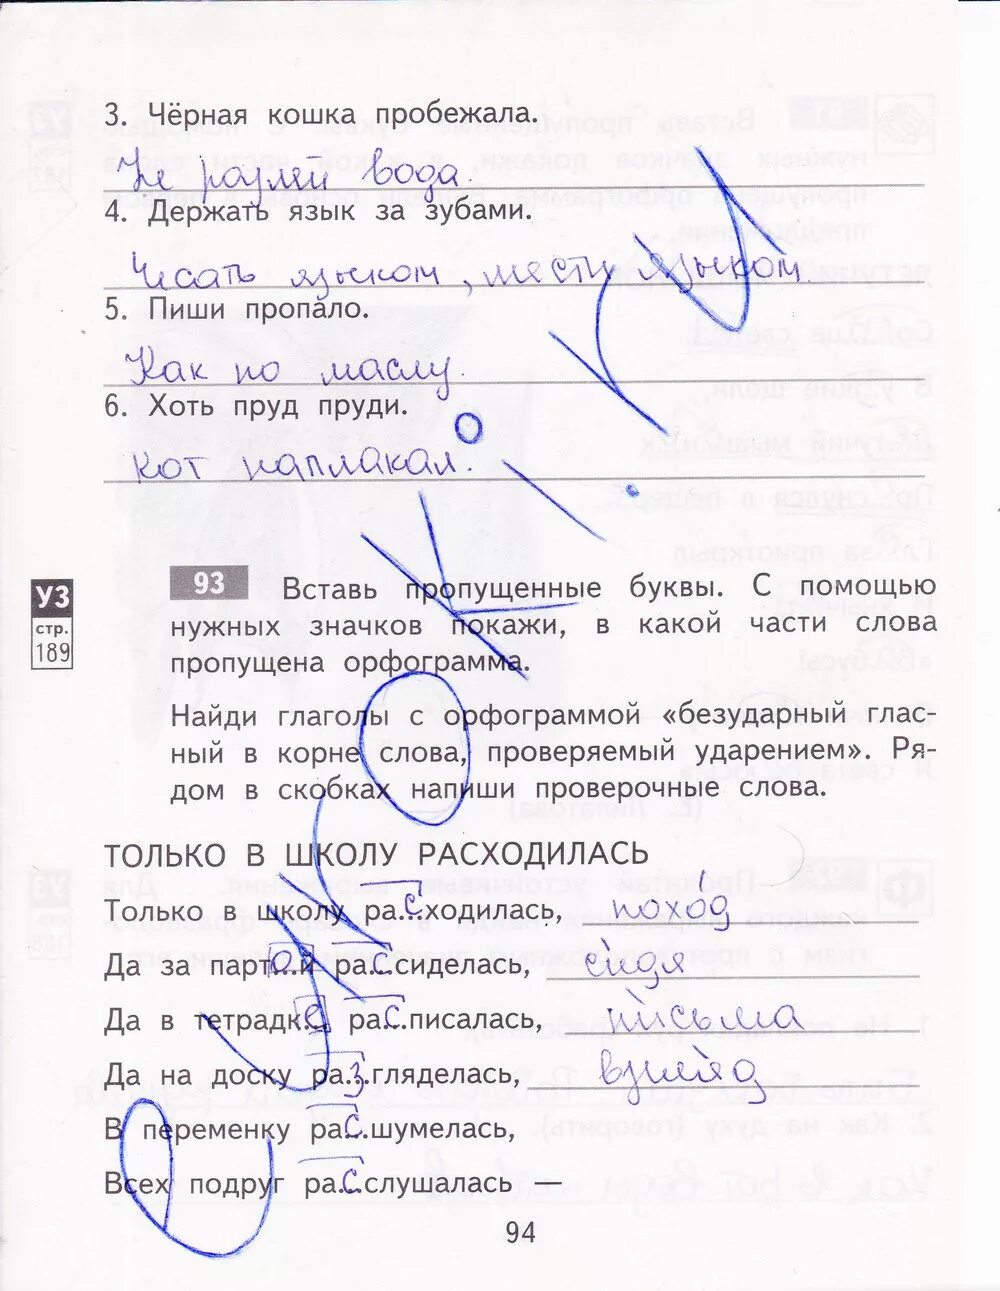 3. Чёрная кошка пробежала.
Не разлей вода.
4. Держать язык за зубами.
Чесать языком, мести языком.
5. Пиши пропало.
Как по маслу.
6. Хоть пруд пруди.
кот наплакал.
УЗ
стр.
189
93 Вставь пропущенные буквы. С помощью
нужных значков покажи, в какой части слова
пропущена орфограмма.
Найди глаголы с орфограммой «безударный глас-
ный в корне слова, проверяемый ударением». Ря-
дом в скобках напиши проверочные слова.
ТОЛЬКО В ШКОЛУ РАСХОДИЛАСЬ
Только в школу ра.с.ходилась, похо́д
Да за парт.о.й ра.с.сиделась, си́дя
Да в тетрадк.е. ра.с.писалась, пи́сьма
Да на доску ра.з.гляделась, взгля́д
В переменку ра.с.шумелась,
Всех подруг ра.с.слушалась —
94